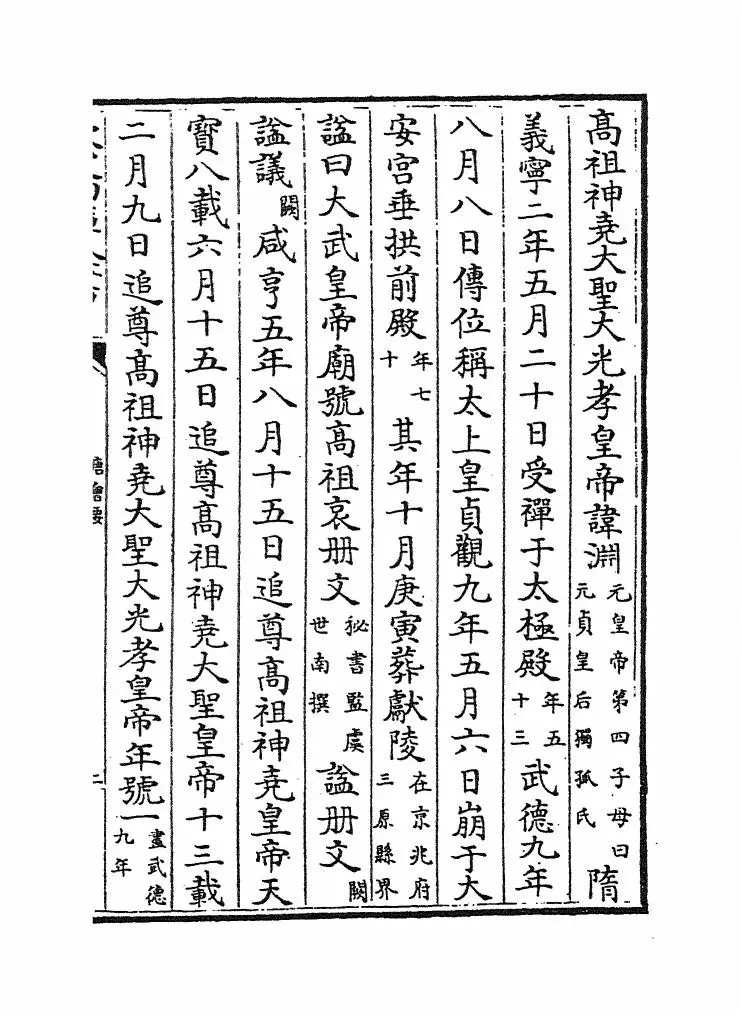 髙祖神堯大聖大光孝皇帝諱淵元皇帝第四子母曰元貞皇后獨孤氏隋
義寧二年五月二十日受禪于太極殿年五十三武德九年
八月八日傳位稱太上皇貞觀九年五月六日崩于大
安宫垂拱前殿年七十其年十月庚寅葬獻陵在京兆府三原縣界
諡曰大武皇帝廟號髙祖哀册文秘書監虞世南撰諡册文闕
諡議闕咸亨五年八月十五日追尊髙祖神堯皇帝天
寳八載六月十五日追尊髙祖神堯大聖皇帝十三載
二月九日追尊髙祖神堯大聖大光孝皇帝年號一盡武德九年
唐會要
二